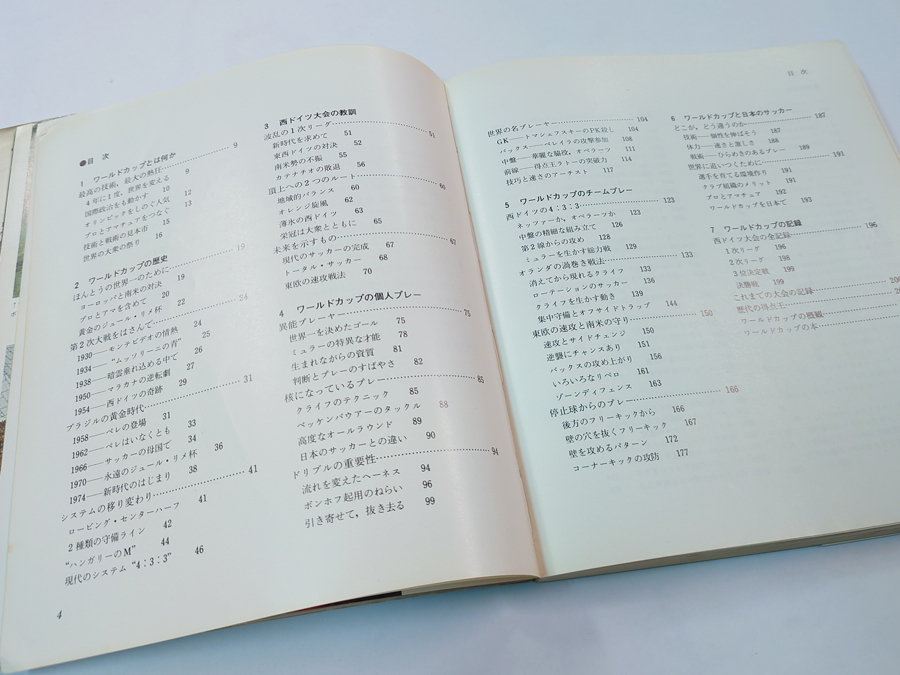 ●目 次
1 ワールドカップとは何か
最高の技術，最大の熱狂…………… 9
4年に1度，世界を変える 9
国際政治をも動かす 10
オリンピックをしのぐ人気 12
プロとアマチュアをつなぐ 13
技術と戦術の見本市 15
世界の大衆の祭り 16
2 ワールドカップの歴史
ほんとうの世界一のために…………… 19
ヨーロッパと南米の対決 19
プロとアマを含めて 20
黄金のジュール・リメ杯 22
第2次大戦をはさんで…………… 24
1930――モンテビデオの情熱 24
1934――“ムッソリーニの青” 25
1938――暗雲垂れ込める中で 26
1950――マラカナの逆転劇 27
1954――西ドイツの奇跡 29
ブラジルの黄金時代…………… 31
1958――ペレの登場 31
1962――ペレはいなくとも 33
1966――サッカーの母国で 34
1970――永遠のジュール・リメ杯 36
1974――新時代のはじまり 38
システムの移り変わり…………… 41
ロービング・センターハーフ 41
2種類の守備ライン 42
“ハンガリーのM” 44
現代のシステム“4：3：3” 46
4
3 西ドイツ大会の教訓
波乱の1次リーグ…………… 51
新時代を求めて 51
東西ドイツの対決 52
南米勢の不振 55
カテナチオの敗退 56
頂上への2つのルート…………… 60
地域的バランス 60
オレンジ旋風 62
薄氷の西ドイツ 63
栄冠は大衆とともに 65
未来を示すもの…………… 67
現代のサッカーの完成 67
トータル・サッカー 68
東欧の速攻戦法 70
4 ワールドカップの個人プレー
異能プレーヤー…………… 75
世界一を決めたゴール 75
ミュラーの特異な才能 78
生まれながらの資質 81
判断とプレーのすばやさ 82
核になっているプレー…………… 85
クライフのテクニック 85
ベッケンバウアーのタックル 88
高度なオールラウンド 89
日本のサッカーとの違い 90
ドリブルの重要性…………… 94
流れを変えたヘーネス 94
ボンホフ起用のねらい 96
引き寄せて，抜き去る 99
目 次
世界の名プレーヤー…………… 104
GK――トマシェフスキーのPK殺し 104
バックス――ペレイラの攻撃参加 108
中盤――華麗な脇役，オベラーツ 111
前線――得点王ラトーの突破力 114
技巧と速さのアーチスト 117
5 ワールドカップのチームプレー
西ドイツの4：3：3…………… 123
ネッツァーか，オベラーツか 123
中盤の精細な組み立て 126
第2線からの攻め 128
ミュラーを生かす総力戦 129
オランダの渦巻き戦法…………… 133
消えてから現れるクライフ 133
ローテーションのサッカー 136
クライフを生かす動き 139
集中守備とオフサイドトラップ 144
東欧の速攻と南米の守り…………… 150
速攻とサイドチェンジ 150
逆襲にチャンスあり 151
バックスの攻め上がり 156
いろいろなリベロ 161
ゾーンディフェンス 163
停止球からのプレー…………… 166
後方のフリーキックから 166
壁の穴を抜くフリーキック 167
壁を攻めるパターン 172
コーナーキックの攻防 177
6 ワールドカップと日本のサッカー
とこが，どう違うのか…………… 187
技術――個性を伸ばそう 187
体力――速さと激しさ 188
戦術――ひらめきのあるプレー 189
世界に追いつくために…………… 191
選手を育てる環境作り 191
クラブ組織のメリット 191
プロとアマチュア 192
ワールドカップを日本で 193
7 ワールドカップの記録
西ドイツ大会の全記録…………… 196
1次リーグ 196
2次リーグ 198
3位決定戦 199
決勝戦 199
これまでの大会の記録……………
歴代の得点王……………
ワールドカップの
ワールドカップの本